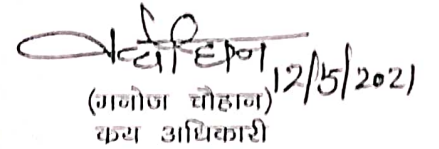 12/5/2021
(मनोज चौहान)
क्रय अधिकारी